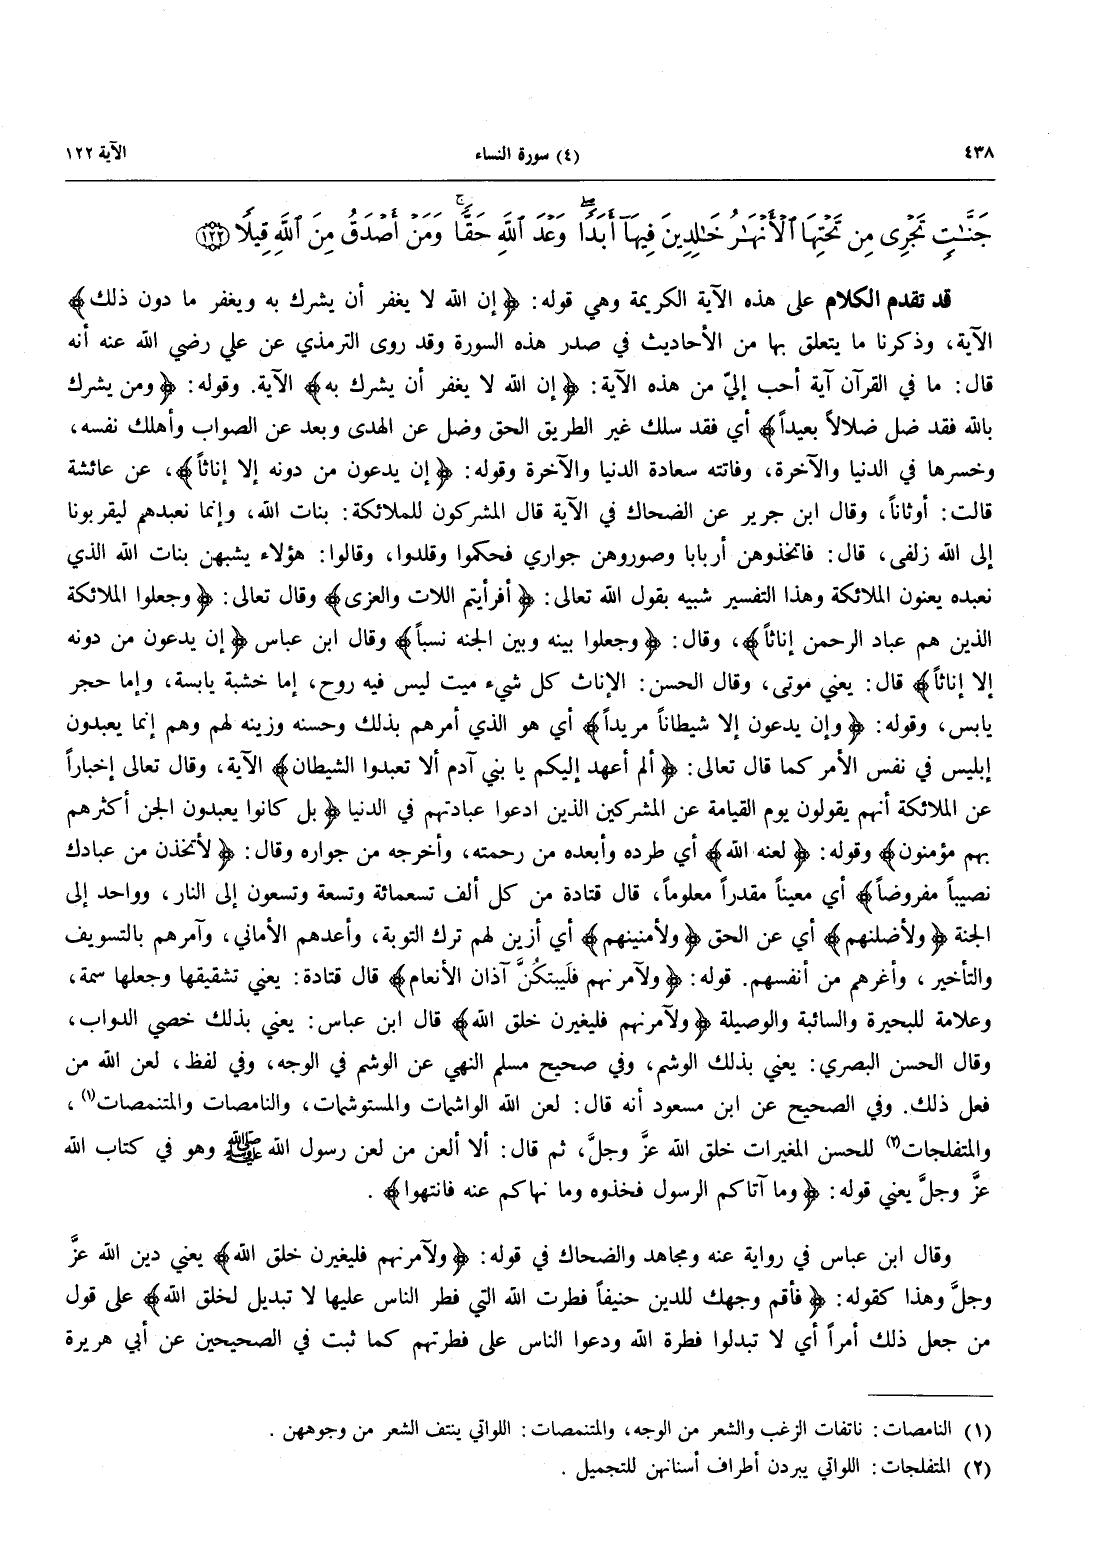 ٤٣٨
(٤) سورة النساء
الآية ١٢٢
جَنَّـٰتٍ تَجْرِى مِن تَحْتِهَا ٱلْأَنْهَـٰرُ خَـٰلِدِينَ فِيهَآ أَبَدًا ۖ وَعْدَ ٱللَّهِ حَقًّا ۚ وَمَنْ أَصْدَقُ مِنَ ٱللَّهِ قِيلًا ١٢٢
قد تقدم الكلام على هذه الآية الكريمة وهي قوله: ﴿إن الله لا يغفر أن يشرك به ويغفر ما دون ذلك﴾
الآية، وذكرنا ما يتعلق بها من الأحاديث في صدر هذه السورة وقد روى الترمذي عن علي رضي الله عنه أنه
قال: ما في القرآن آية أحب إليّ من هذه الآية: ﴿إن الله لا يغفر أن يشرك به﴾ الآية. وقوله: ﴿ومن يشرك
بالله فقد ضل ضلالاً بعيداً﴾ أي فقد سلك غير الطريق الحق وضل عن الهدى وبعد عن الصواب وأهلك نفسه،
وخسرها في الدنيا والآخرة، وفاتته سعادة الدنيا والآخرة وقوله: ﴿إن يدعون من دونه إلا إناثاً﴾، عن عائشة
قالت: أوثاناً، وقال ابن جرير عن الضحاك في الآية قال المشركون للملائكة: بنات الله، وإنما نعبدهم ليقربونا
إلى الله زلفى، قال: فاتخذوهن أربابا وصوروهن جواري فحكموا وقلدوا، وقالوا: هؤلاء يشبهن بنات الله الذي
نعبده يعنون الملائكة وهذا التفسير شبيه بقول الله تعالى: ﴿أفرأيتم اللات والعزى﴾ وقال تعالى: ﴿وجعلوا الملائكة
الذين هم عباد الرحمن إناثاً﴾، وقال: ﴿وجعلوا بينه وبين الجنه نسباً﴾ وقال ابن عباس ﴿إن يدعون من دونه
إلا إناثاً﴾ قال: يعني موتى، وقال الحسن: الإناث كل شيء ميت ليس فيه روح، إما خشبة يابسة، وإما حجر
يابس، وقوله: ﴿وإن يدعون إلا شيطاناً مريداً﴾ أي هو الذي أمرهم بذلك وحسنه وزينه لهم وهم إنما يعبدون
إبليس في نفس الأمر كما قال تعالى: ﴿ألم أعهد إليكم يا بني آدم ألا تعبدوا الشيطان﴾ الآية، وقال تعالى إخباراً
عن الملائكة أنهم يقولون يوم القيامة عن المشركين الذين ادعوا عبادتهم في الدنيا ﴿بل كانوا يعبدون الجن أكثرهم
بهم مؤمنون﴾ وقوله: ﴿لعنه الله﴾ أي طرده وأبعده من رحمته، وأخرجه من جواره وقال: ﴿لأتخذن من عبادك
نصيباً مفروضاً﴾ أي معيناً مقدراً معلوماً، قال قتادة من كل ألف تسعمائة وتسعة وتسعون إلى النار، وواحد إلى
الجنة ﴿ولأضلنهم﴾ أي عن الحق ﴿ولأمنينهم﴾ أي أزين لهم ترك التوبة، وأعدهم الأماني، وآمرهم بالتسويف
والتأخير، وأغرهم من أنفسهم. قوله: ﴿ولآمرنهم فلَيبتكُنَّ آذان الأنعام﴾ قال قتادة: يعني تشقيقها وجعلها سمة،
وعلامة للبحيرة والسائبة والوصيلة ﴿ولآمرنهم فليغيرن خلق الله﴾ قال ابن عباس: يعني بذلك خصي الدواب،
وقال الحسن البصري: يعني بذلك الوشم، وفي صحيح مسلم النهي عن الوشم في الوجه، وفي لفظ، لعن الله من
فعل ذلك. وفي الصحيح عن ابن مسعود أنه قال: لعن الله الواشمات والمستوشمات، والنامصات والمتنمصات(١)،
والمتفلجات(٢) للحسن المغيرات خلق الله عزَّ وجلَّ، ثم قال: ألا ألعن من لعن رسول الله ﷺ وهو في كتاب الله
عزَّ وجلَّ يعني قوله: ﴿وما آتاكم الرسول فخذوه وما نهاكم عنه فانتهوا﴾.
وقال ابن عباس في رواية عنه ومجاهد والضحاك في قوله: ﴿ولآمرنهم فليغيرن خلق الله﴾ يعني دين الله عزَّ
وجلَّ وهذا كقوله: ﴿فأقم وجهك للدين حنيفاً فطرت الله التي فطر الناس عليها لا تبديل لخلق الله﴾ على قول
من جعل ذلك أمراً أي لا تبدلوا فطرة الله ودعوا الناس على فطرتهم كما ثبت في الصحيحين عن أبي هريرة
(١) النامصات: ناتفات الزغب والشعر من الوجه، والمتنمصات: اللواتي ينتف الشعر من وجوههن.
(٢) المتفلجات: اللواتي يبردن أطراف أسنانهن للتجميل.